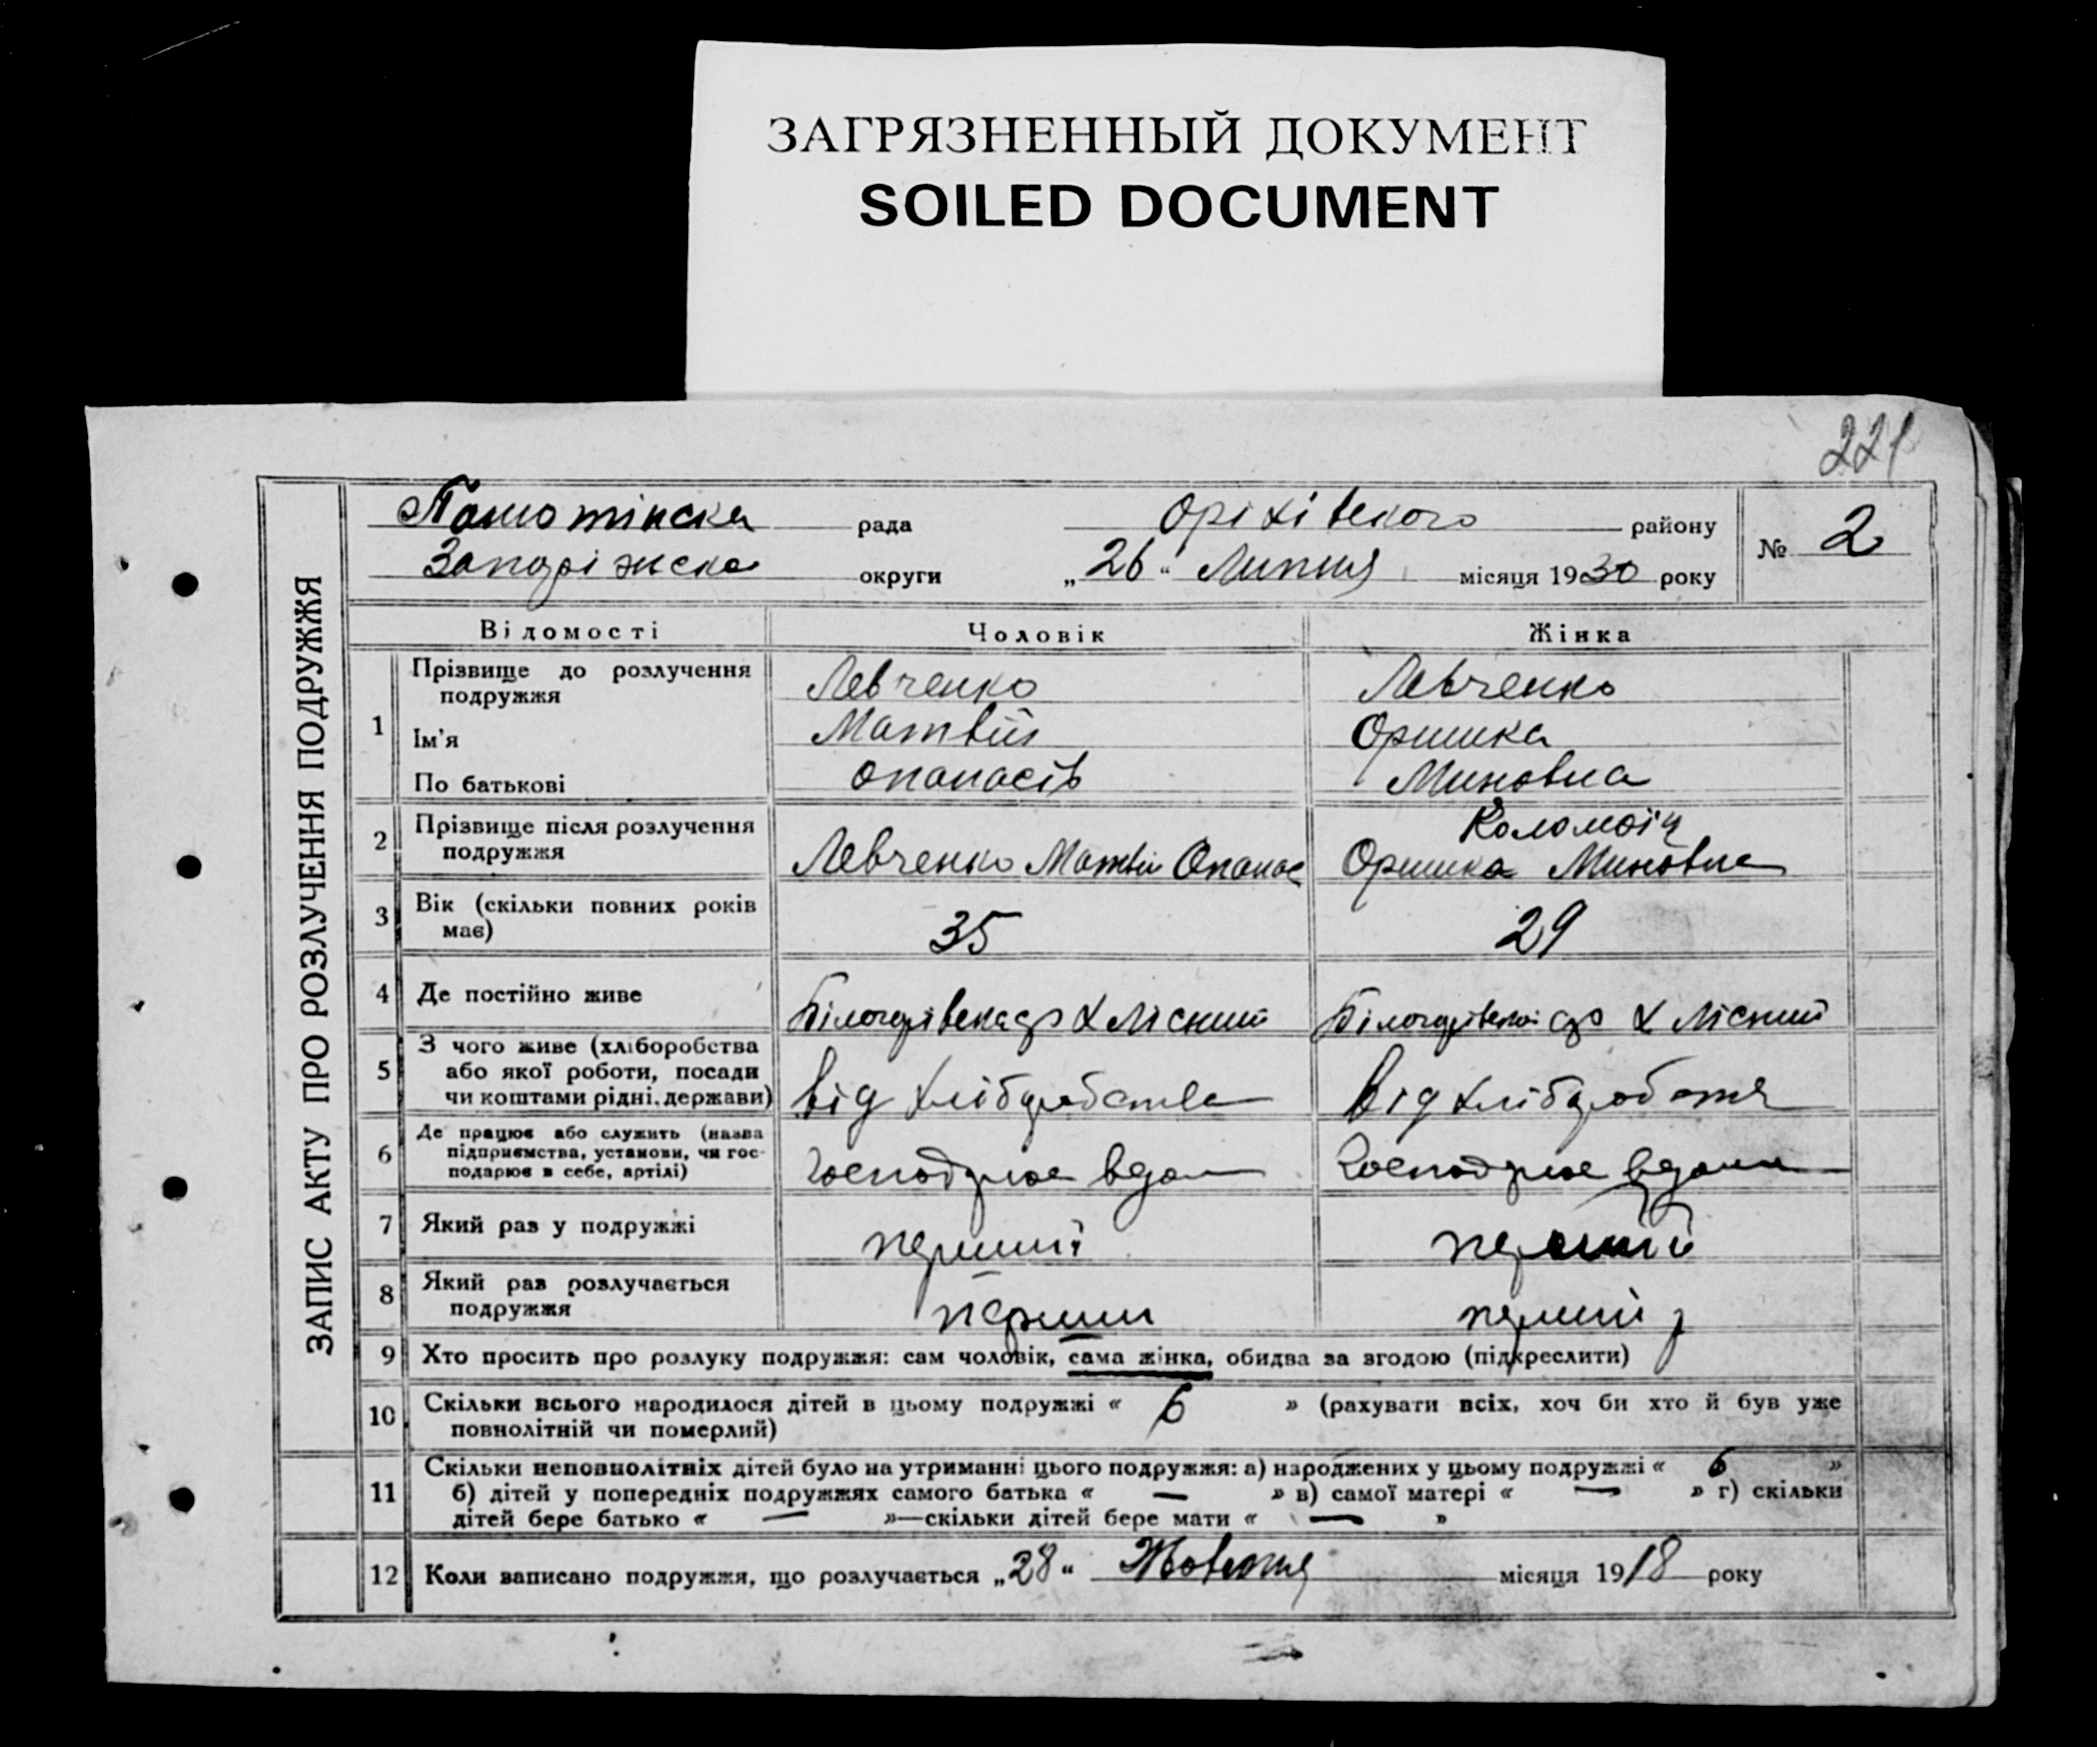 ЗАГРЯЗНЕННЫЙ ДОКУМЕНТ
SOILED DOCUMENT
221
ЗАПИС АКТУ ПРО РОЗЛУЧЕННЯ ПОДРУЖЖЯ
рада Оріхівского району
Запоріжска округи „26“ Липня місяця 1930 року
№ 2
Відомості Чоловік Жінка
1 Прізвище до розлучення подружжя Левченко Левченко
Ім'я Матвій Оришка
По батькові Опанасів Миновна
2 Прізвище після розлучення Коломоїц
подружжя Левченко Матвій Опанас Оришка Миновна
3 Вік (скільки повних років
має) 35 29
4 Де постійно живе Х Лісний Х Лісний
5 З чого живе (хліборобства
або якої роботи, посади
чи коштами рідні, держави) від хліборобства від хліборобства
6 Де працює або служить (назва
підприємства, установи, чи гос-
подарює в себе, артілі) господарює вдома господарює вдома
7 Який раз у подружжі перший перший
8 Який раз розлучається
подружжя перший перший
9 Хто просить про розлуку подружжя: сам чоловік, сама жінка, обидва за згодою (підкреслити)
10 Скільки всього народилося дітей в цьому подружжі « 6 » (рахувати всіх, хоч би хто й був уже
повнолітній чи померлий)
11 Скільки неповнолітніх дітей було на утриманні цього подружжя: а) народжених у цьому подружжі « 6 »
б) дітей у попередніх подружжях самого батька « — » в) самої матері « — » г) скільки
дітей бере батько « — »—скільки дітей бере мати « — »
12 Коли записано подружжя, що розлучається „28“ Жовтня місяця 1918 року